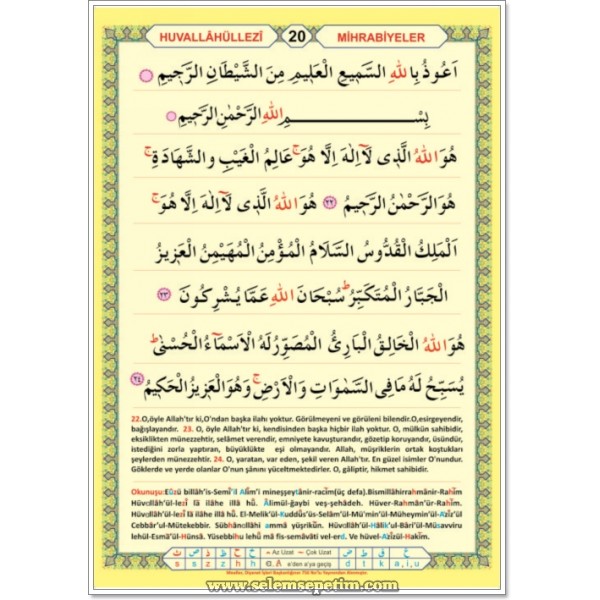 HUVALLÂHÜLLEZÎ 20 MİHRABİYELER
اَعُوذُ بِاللهِ السَّمِيعِ الْعَلِيمِ مِنَ الشَّيْطَانِ الرَّجِيمِ
بِسْــــمِ اللهِ الرَّحْمٰنِ الرَّحِيمِ
هُوَ اللهُ الَّذِى لَآ اِلٰهَ اِلَّا هُوَ ۚ عَالِمُ الْغَيْبِ وَالشَّهَادَةِ ۚ
هُوَ الرَّحْمٰنُ الرَّحِيمُ ﴿٢٢﴾ هُوَ اللهُ الَّذِى لَآ اِلٰهَ اِلَّا هُوَ ۚ
اَلْمَلِكُ الْقُدُّوسُ السَّلَامُ الْمُؤْمِنُ الْمُهَيْمِنُ الْعَزِيزُ
الْجَبَّارُ الْمُتَكَبِّرُ ۜ سُبْحَانَ اللهِ عَمَّا يُشْرِكُونَ ﴿٢٣﴾
هُوَ اللهُ الْخَالِقُ الْبَارِئُ الْمُصَوِّرُ لَهُ الْاَسْمَآءُ الْحُسْنٰى ۜ
يُسَبِّحُ لَهُ مَا فِى السَّمٰوَاتِ وَالْاَرْضِ ۚ وَهُوَ الْعَزِيزُ الْحَكِيمُ ﴿٢٤﴾
22.O,öyle Allah'tır ki,O'ndan başka ilahı yoktur. Görülmeyeni ve görüleni bilendir.O,esirgeyendir,
bağışlayandır. 23. O, öyle Allah'tır ki, kendisinden başka hiçbir ilah yoktur. O, mülkün sahibidir,
eksiklikten münezzehtir, selâmet verendir, emniyete kavuşturandır, gözetip koruyandır, üsündür,
istediğini zorla yaptıran, büyüklükte eşi olmayandır. Allah, müşriklerin ortak koştukları
şeylerden münezzehtir. 24. O, yaratan, var eden, şekil veren Allah'tır. En güzel isimler O'nundur.
Göklerde ve yerde olanlar O'nun şânını yüceltmektedirler. O, gâliptir, hikmet sahibidir.
Okunuşu:Eûzü billâh'is-Semî'il Alîm'i mineşşeytânir-racîm(üç defa).Bismillâhirrahmânir-Rahîm
Hüvallâhül-lezî lâ ilâhe illâ hû. Âlimül-ğaybi veş-şehâdeh. Hüver-Rahmânür-Rahîm
Hüvallâhül-lezî lâ ilâhe illâ hû. El-Melik'ül-Kuddûs'üs-Selâm'ül-Mü'min'ül-Müheymin'ül-Azîz'ül
Cebbâr'ul-Mütekebbir. Sübhânallâhi ammâ yüşrikûn. Hüvallâh'ül-Hâlik'ul-Bâri'ül-Müsavviru
lehül-Esmâ'ül-Hüsnâ. Yüsebbihu lehû mâ fis-semâvâti vel-erd. Ve hüvel-Azîzül-Hakîm.
Az Uzat Çok Uzat
a'den a'ya geçiş
www.selemsepetim.com